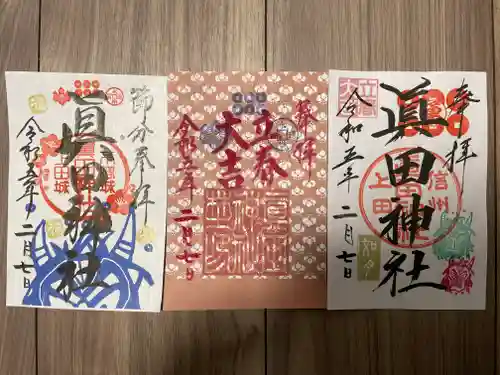 節分奉拝
眞田神社
令和五年
二月七日
奉拝
立春
大吉
令和五年
二月七日
奉拝
眞田神社
信州
上田
令和五年
二月七日
如月